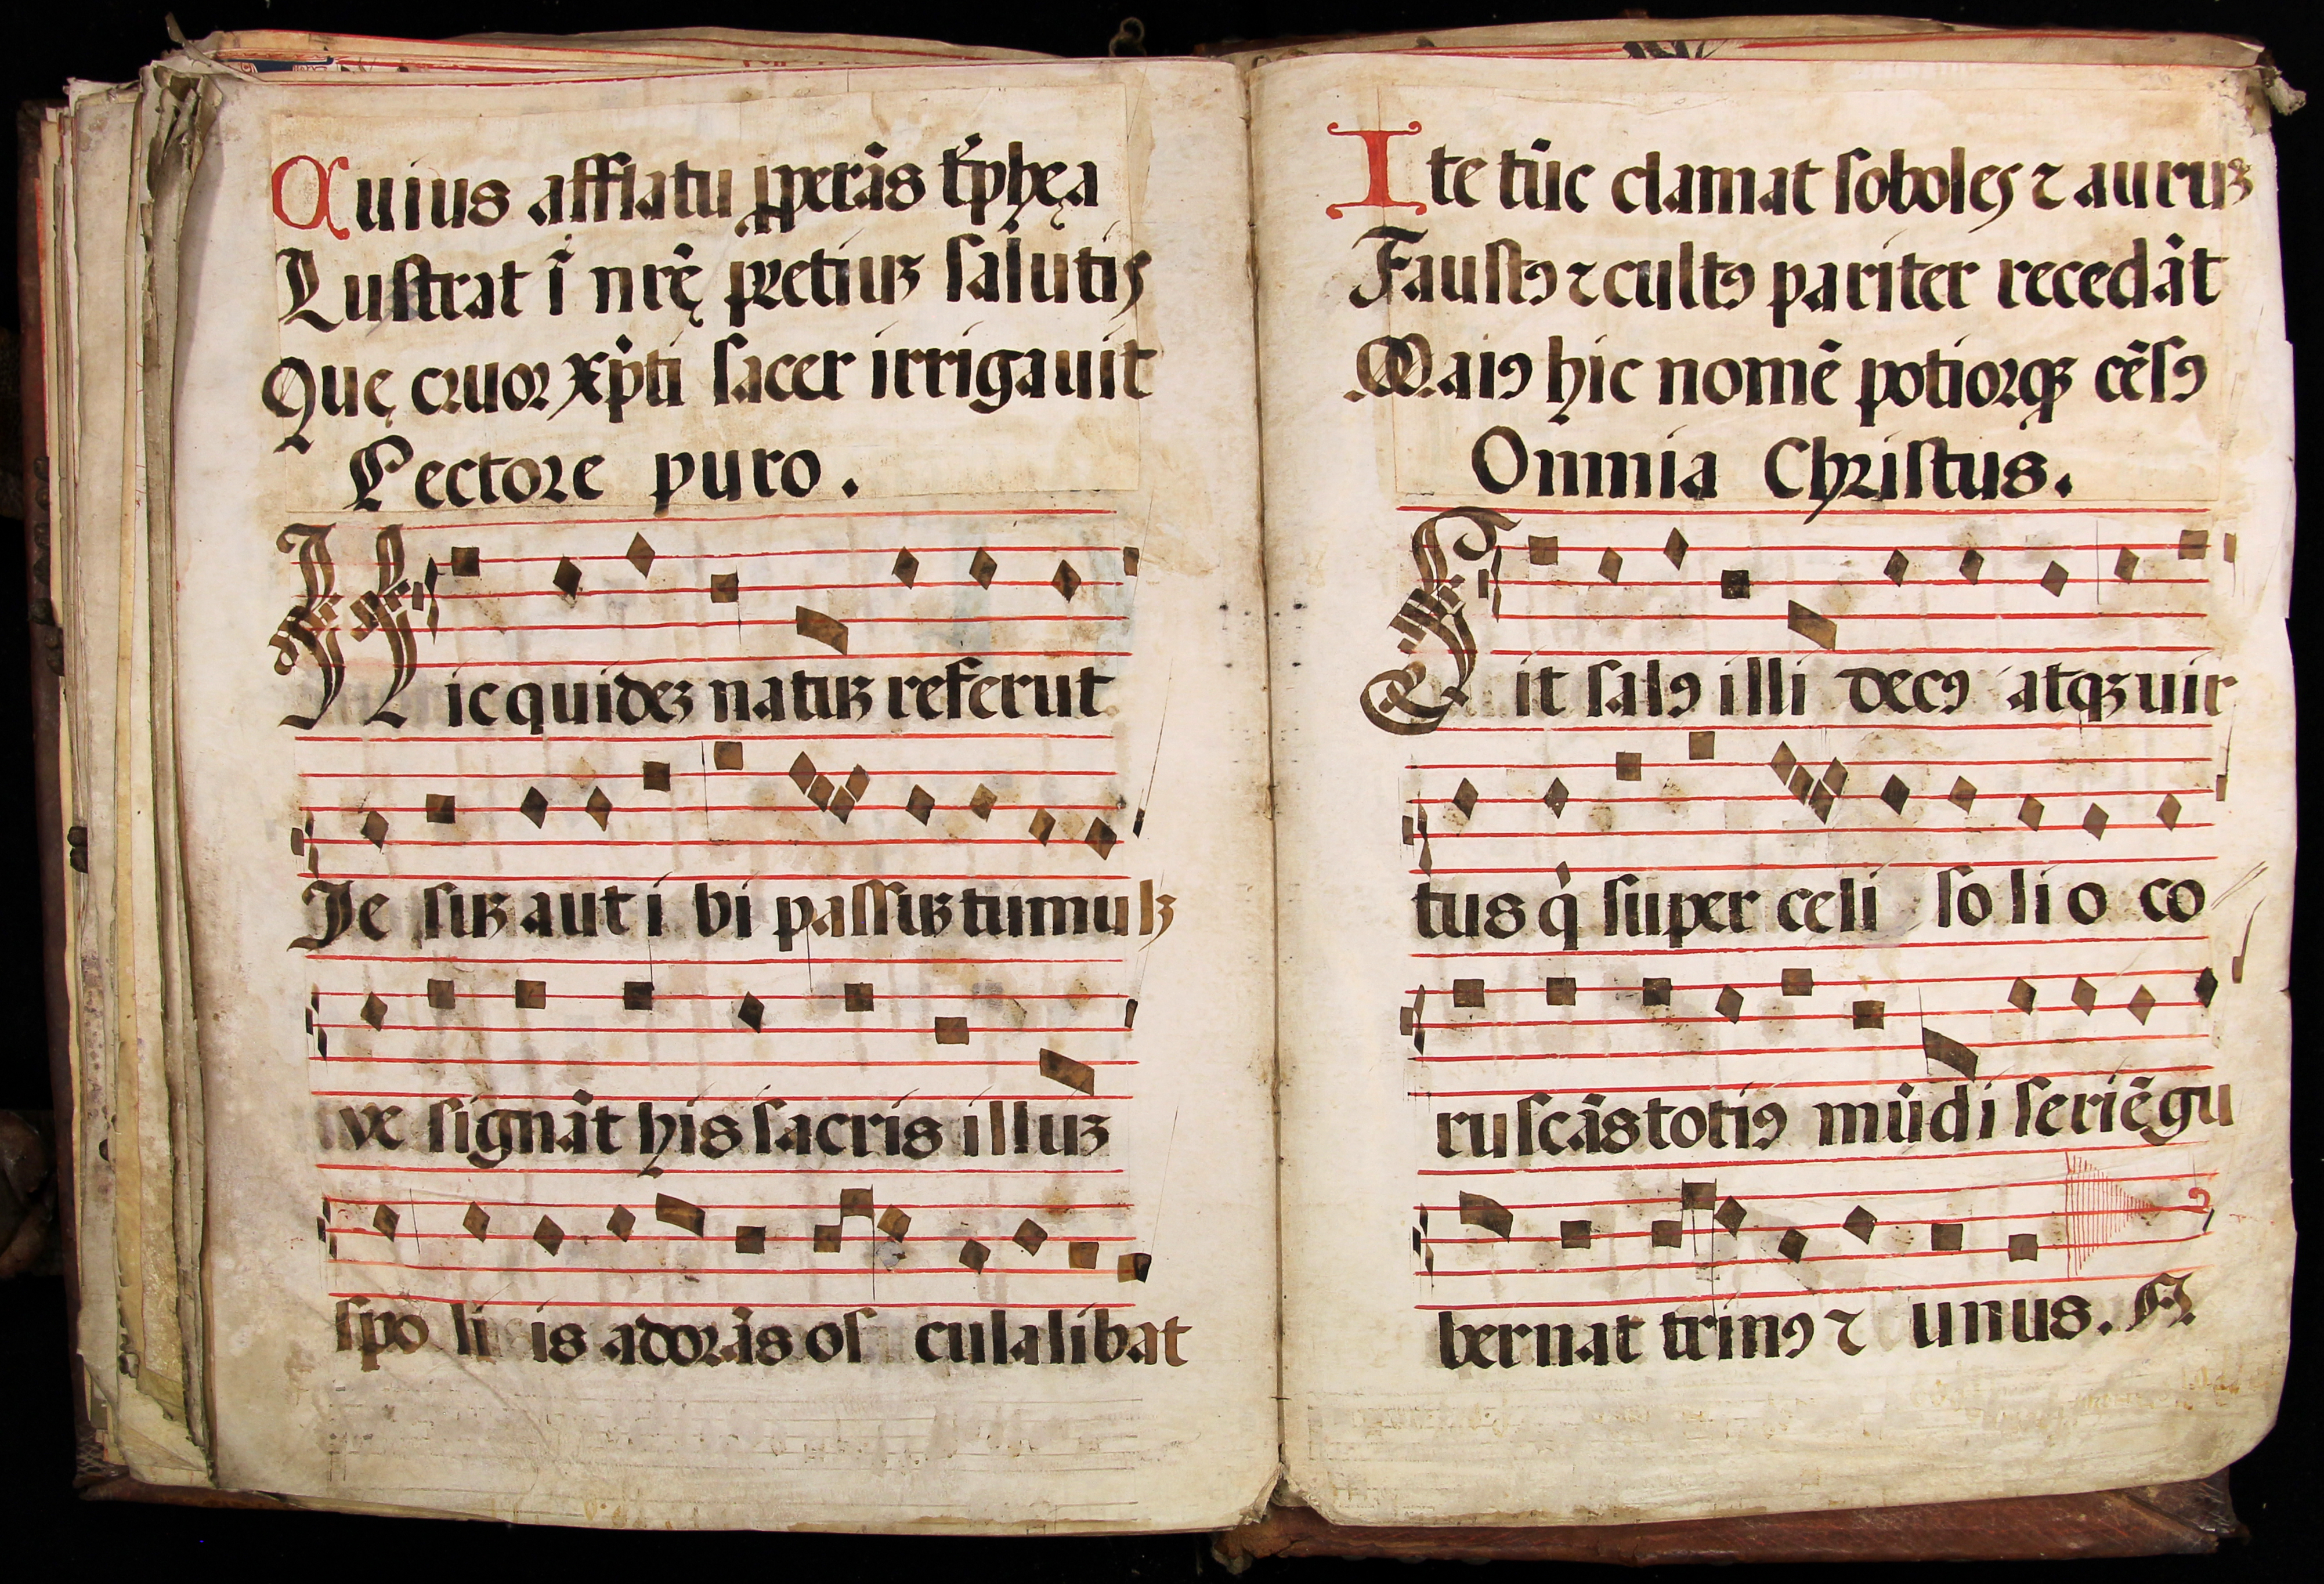 Cuius afflatu ꝓperãs tᵽphęa
Lustrat ĩ nrę̃ pretiuꝫ salutis
Quę cruor xp̃ti sacer irrigauit
Pectore puro.
Hic quideꝫ natuꝫ referut
Je suꝫ aut i bi passuꝫ tumulꝫ
ve signãt his sacris illuꝫ
spo li is adorãs os culalibat
Ite tũc clamat soboles ⁊ auruꝫ
Faustꝯ ⁊ cultꝯ pariter recedãt
Maiꝯ hic nomẽ potiorqꝫ cẽsꝯ
Omnia Christus.
Sit salꝯ illi decꝯ atqꝫ uir
tus q̇ super celi so li o co
ruscãs totiꝯ mũdi seriẽ gu
bernat trinꝯ ⁊ unus. A.